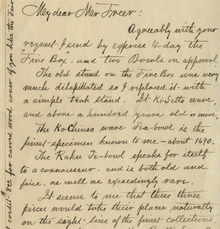 My dear Mr Freer:
Agreeably with your
request I send by express to-day the
Fire Box, and two Bowls on approval
The old stand on the Fire Box was very
much dilapidated so I replaced it with
a simple teak stand. It
and above a hundred years old
The wave Tea-bowl is the
finest specimen known to me - about 1690.
The Raku Te-bowl speaks for itself
to a connoisseur, and is both old and
fine, as well as exceedingly rare.
It seems to me that these three
pieces would take their place naturally
on the eight line of the finest collections